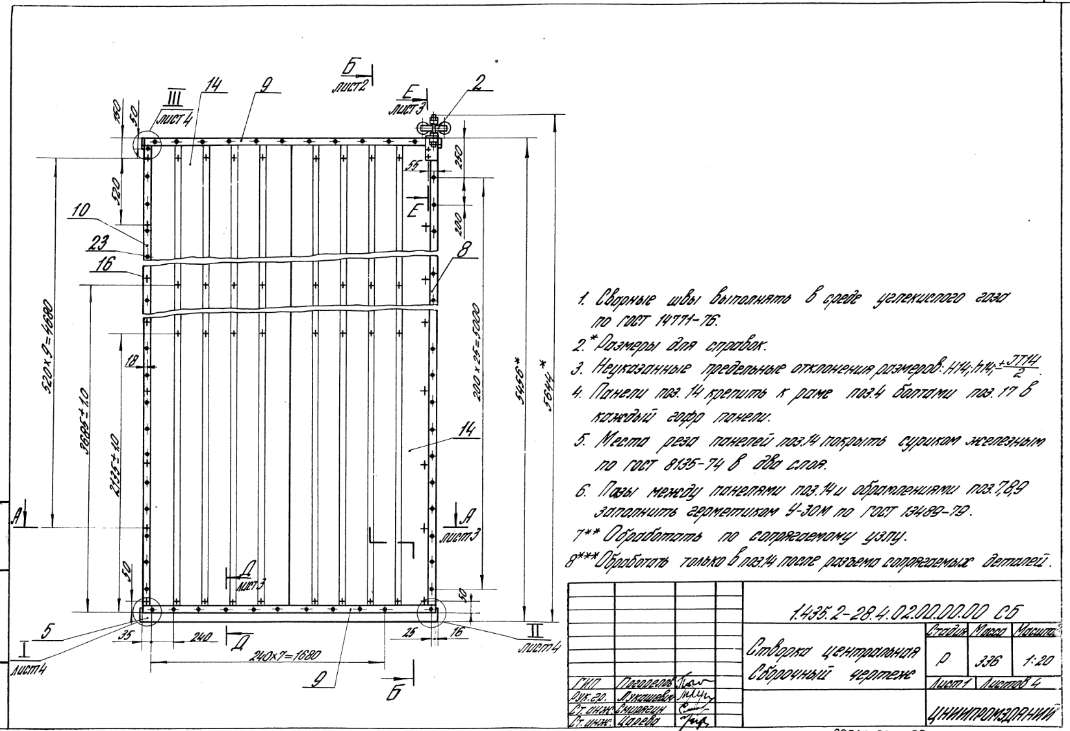 Б
лист2
Е
лист3
2
III
лист4
14
9
150
50
55
250
520
Е
200
10
23
16
8
520×9=4680
18
3695±1.0
2135±1.0
200×25=5000
5456*
5644*
14
А
А
лист3
Д
лист3
50
50
5
35
240
Д
25
16
II
лист4
I
лист4
240×7=1680
9
Б
1. Сборные швы выполнять в среде углекислого газа
по ГОСТ 14771-76.
2.* Размеры для справок.
3. Неуказанные предельные отклонения размеров: H14; h14; ±JT14/2.
4. Панели поз.14 крепить к раме поз.4 болтами поз.17 в
каждый гофр панели.
5. Места реза панелей поз.14 покрыть суриком железным
по ГОСТ 8135-74 в два слоя.
6. Пазы между панелями поз.14 и обрамлениями поз.7,8,9
заполнить герметиком У-30М по ГОСТ 13489-79.
7** Обработать по сопрягаемому узлу.
8*** Обработать только в поз.14 после разъема сопрягаемых деталей.
1.435.2-28.4.02.00.00.00 СБ
Створка центральная
Сборочный чертеж
Стадия Масса Масштаб
Р 336 1:20
Лист 1 Листов 4
ЦНИИПРОМЗДАНИЙ
ГИП
Рук.гр. Лукашевич
Ст. инж.
Ст. инж. Царева